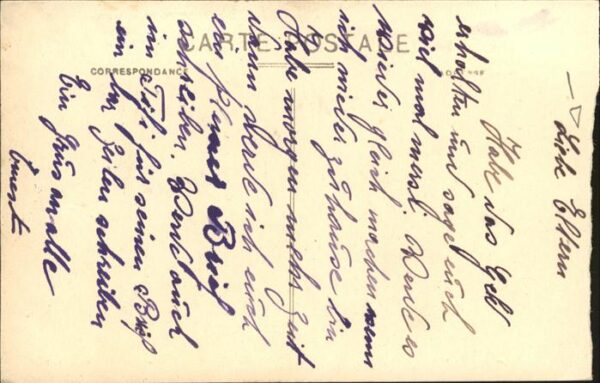 CARTE POSTALE
CORRESPONDANCE
Liebe Eltern
Habe das Geld
erhalten und sage euch
viel mal mersi. Werde es
wieder gleich machen wenn
ich wieder zuhause bin
Habe morgen mehr Zeit
dann werde ich euch
ein Brief
schreiben. Werde auch
im für seinen Brief
ein par Zeilen schreiben
Ein Grus an alle
Ernst